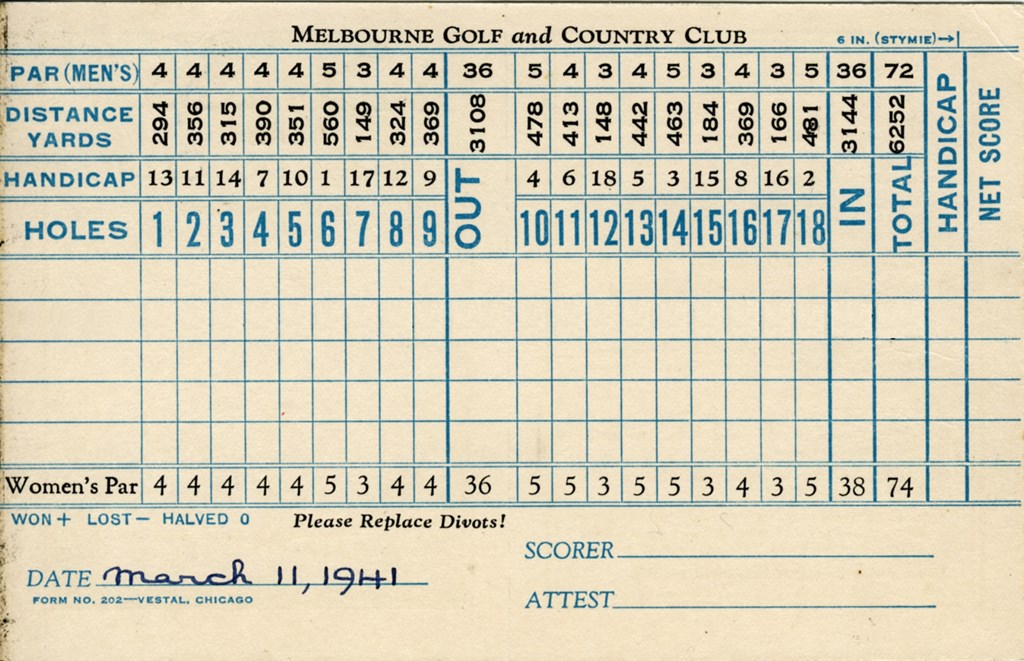 MELBOURNE GOLF and COUNTRY CLUB 6 IN. (STYMIE)→|
PAR (MEN'S) 4 4 4 4 4 5 3 4 4 36 5 4 3 4 5 3 4 3 5 36 72 HANDICAP NET SCORE
DISTANCE YARDS 294 356 315 390 351 560 149 324 369 3108 478 413 148 442 463 184 369 166 481 3144 6252
HANDICAP 13 11 14 7 10 1 17 12 9 OUT 4 6 18 5 3 15 8 16 2 IN TOTAL
HOLES 1 2 3 4 5 6 7 8 9 10 11 12 13 14 15 16 17 18
Women's Par 4 4 4 4 4 5 3 4 4 36 5 5 3 5 5 3 4 3 5 38 74
WON + LOST – HALVED 0 Please Replace Divots!
SCORER
DATE march 11, 1941
FORM NO. 202—VESTAL, CHICAGO
ATTEST